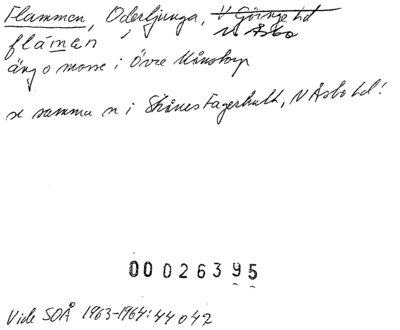 Flammen, Oderljunga, V Göinge hd
N Åsbo
flámen
äng o mosse i Övre Månstorp
se samma n i Skånes Fagerhult, N Åsbo hd!
00026395
Vide SOÅ 1963-1964: 44 o 47